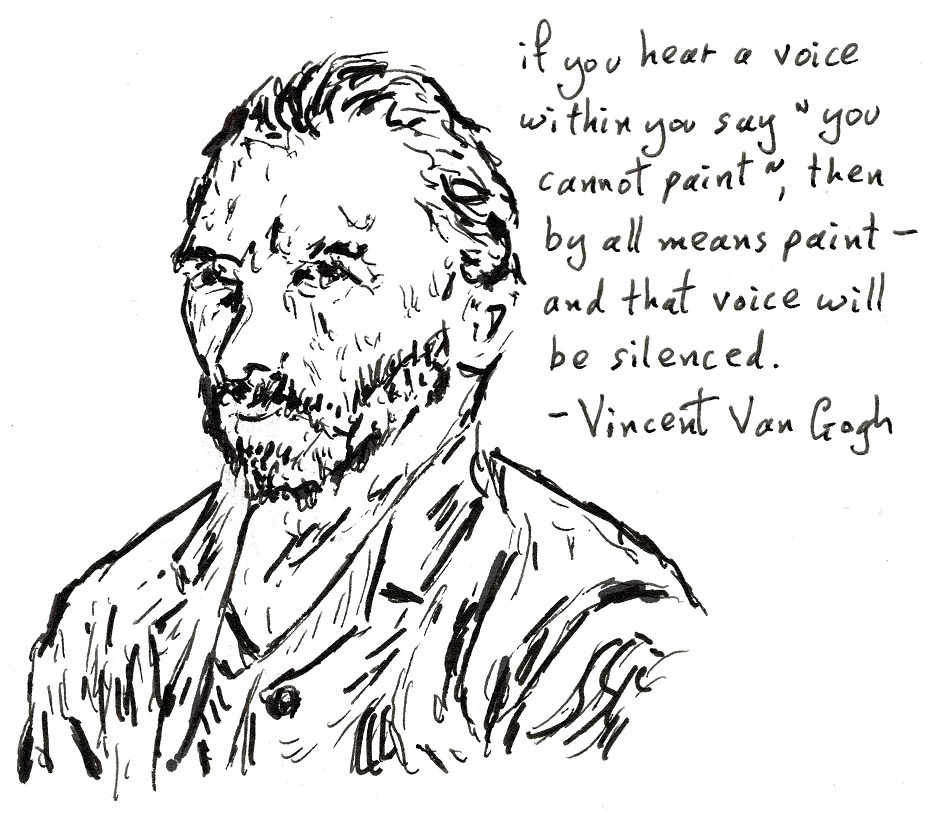 if you hear a voice
within you say "you
cannot paint", then
by all means paint –
and that voice will
be silenced.
– Vincent Van Gogh